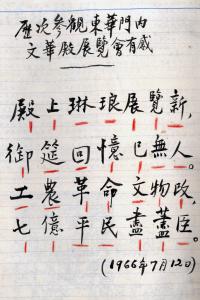 歷次參觀東華門內
文華殿展覽會有感
殿上琳琅展覽新，
御筵回憶已無人。
工農革命文物改，
七億平民盡蓋臣。
(1966年7月12日)